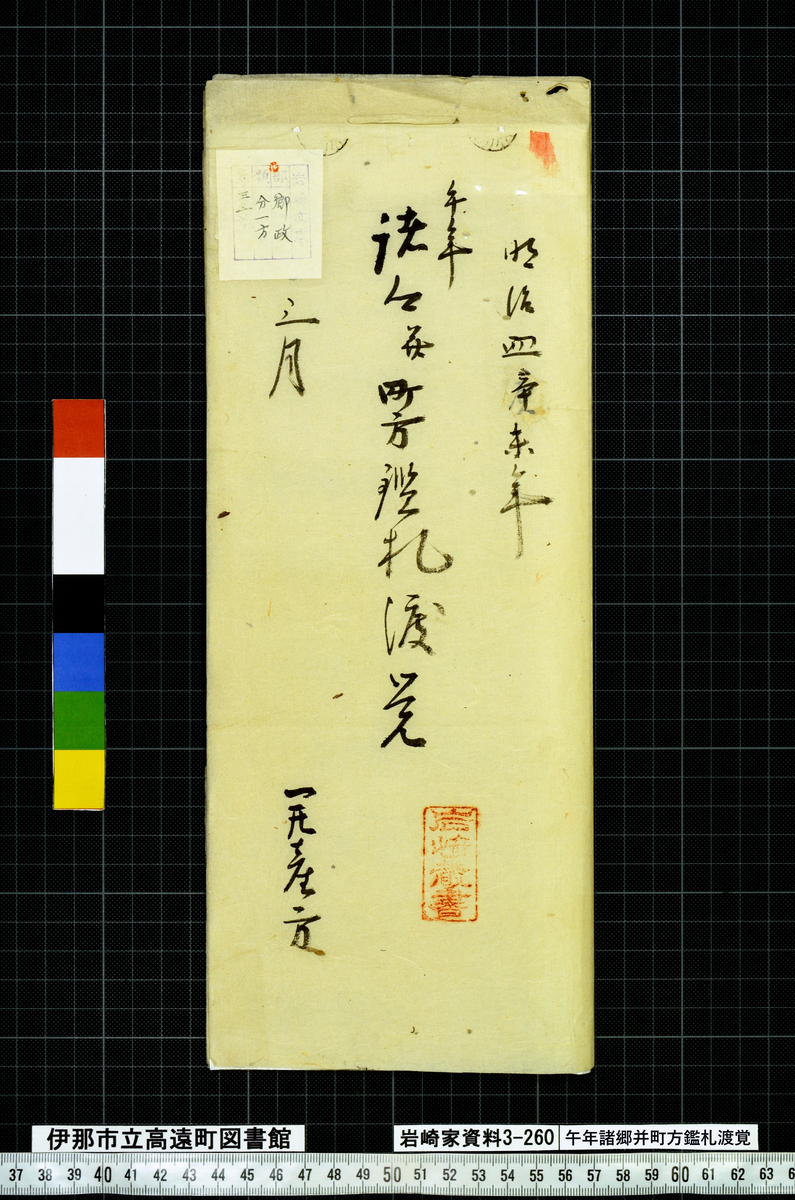 明治四辛未年
午年
諸郷并町方鑑札渡覚
三月
産方
岩崎蔵書
郷政
分一方
伊那市立高遠町図書館
岩崎家資料3-260
午年諸郷并町方鑑札渡覚
37 38 39 40 41 42 43 44 45 46 47 48 49 50 51 52 53 54 55 56 57 58 59 60 61 62 63